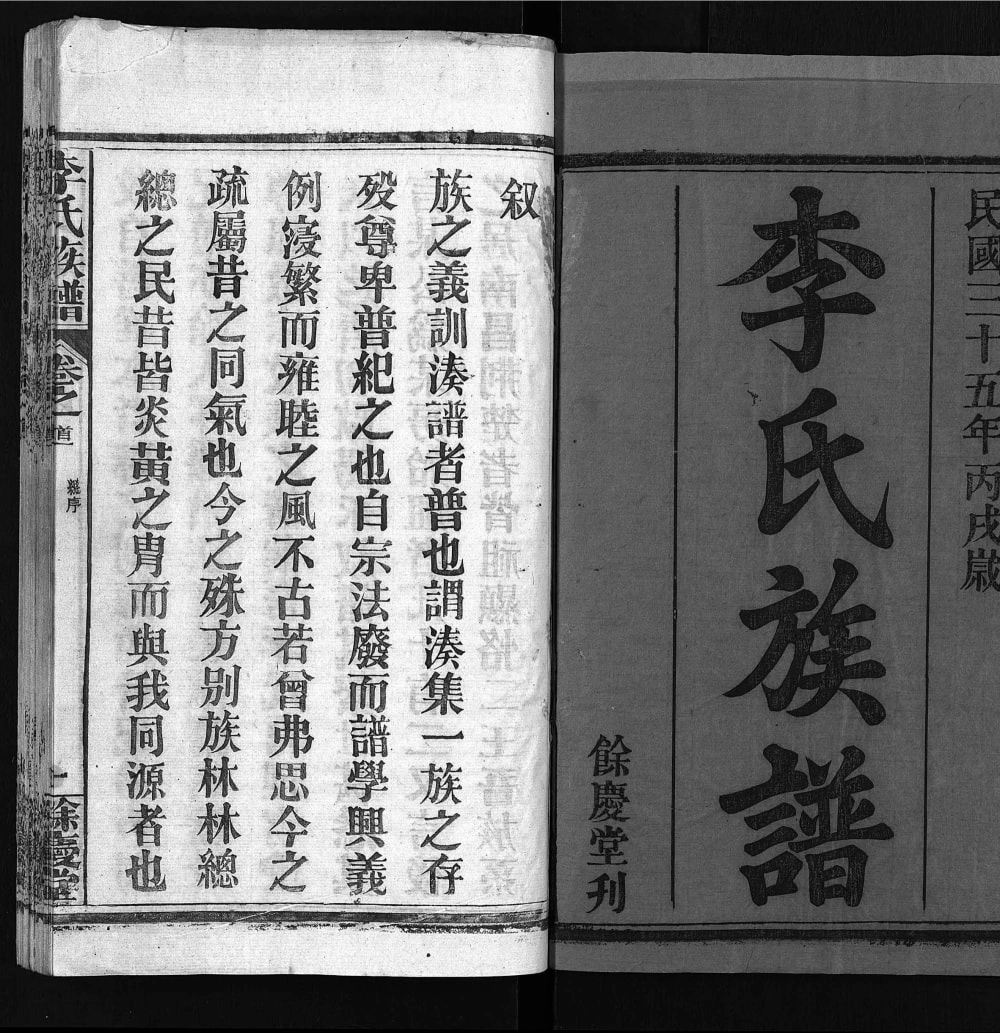 民國三十五年丙戌歲
李氏族譜
餘慶堂刋
叙
族之義訓湊譜者普也謂湊集一族之存
歿尊卑普紀之也自宗法廢而譜學興義
例寖繁而雍睦之風不古若曾弗思今之
疏屬昔之同氣也今之殊方别族林林總
總之民昔皆炎黃之胄而與我同源者也
李氏族譜 卷之一 首 總序 一 餘慶堂